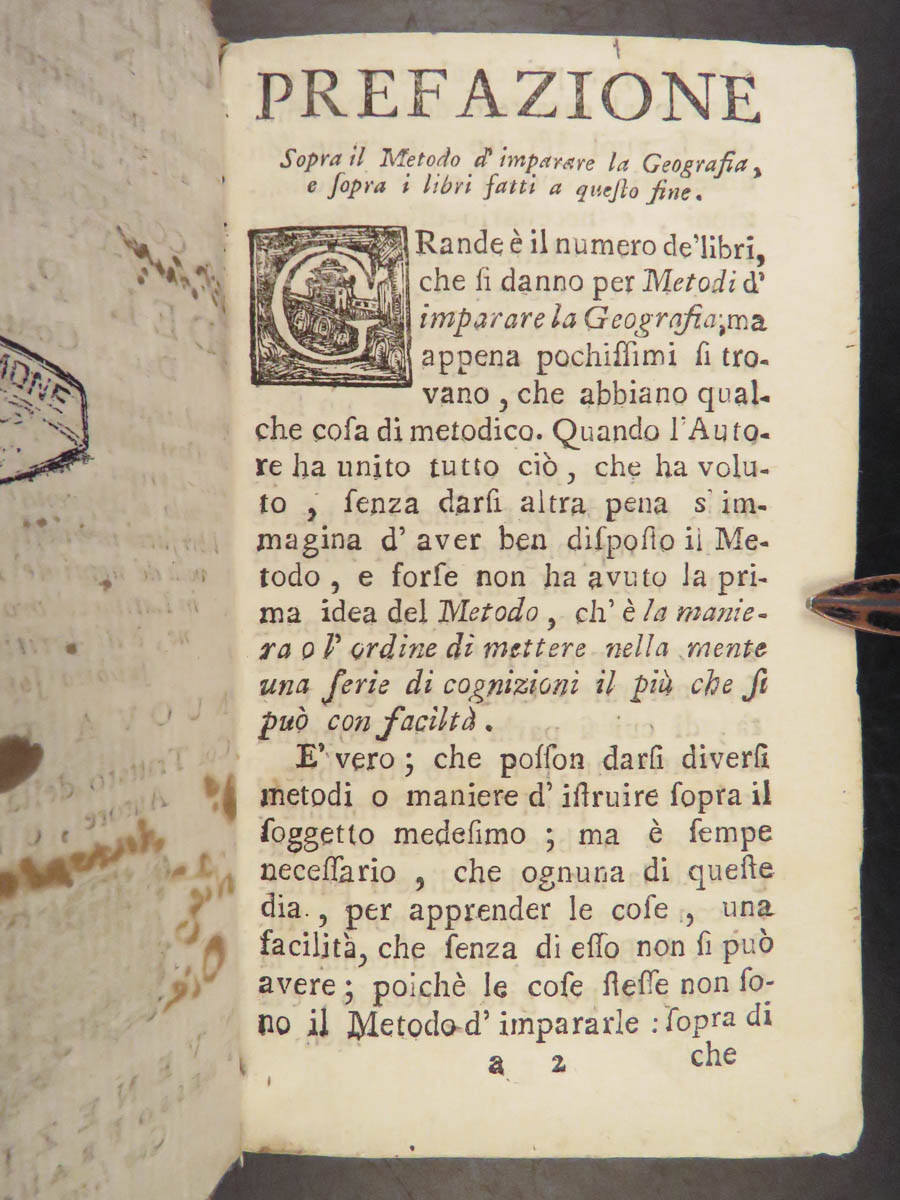 PREFAZIONE
Sopra il Metodo d' imparare la Geografia,
e ſopra i libri fatti a queſto fine.
GRande è il numero de'libri,
che ſi danno per Metodi d'
imparare la Geografia; ma
appena pochiſſimi ſi tro-
vano, che abbiano qual-
che coſa di metodico. Quando l'Auto-
re ha unito tutto ciò, che ha volu-
to, ſenza darſi altra pena s' im-
magina d' aver ben diſpoſto il Me-
todo, e forſe non ha avuto la pri-
ma idea del Metodo, ch' è la manie-
ra o l' ordine di mettere nella mente
una ſerie di cognizioni il più che ſi
può con faciltà.
E' vero; che poſſon darſi diverſi
metodi o maniere d' iſtruire ſopra il
ſoggetto medeſimo; ma è ſempe
neceſſario, che ognuna di queſte
dia., per apprender le coſe, una
facilità, che ſenza di eſſo non ſi può
avere; poichè le coſe ſteſſe non ſo-
no il Metodo d' impararle: ſopra di
a 2 che
MONE
DEL
NUOVA
Trattato della
Autore
VENEZI